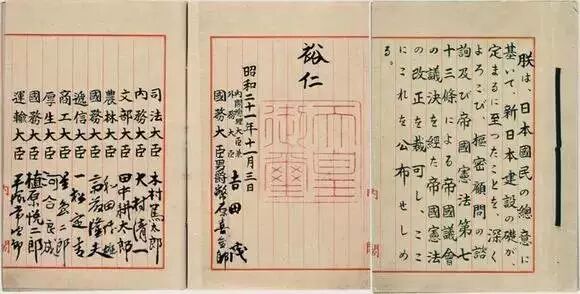 朕は、日本國民の總意に
基いて、新日本建設の礎が、
定まるに至つたことを、深く
よろこび、樞密顧問の諮
詢及び帝國憲法第七
十三條による帝國議會
の議決を經た帝國憲法
の改正を裁可し、ここ
にこれを公布せしめ
る。
内閣
裕仁
天皇御璽
昭和二十一年十一月三日
内閣總理大臣兼
外務大臣 吉田茂
國務大臣 男爵幣原喜重郎
内閣
司法大臣 木村篤太郎
内務大臣 大村清一
文部大臣 田中耕太郎
農林大臣 和田博雄
國務大臣 斎藤隆夫
逓信大臣 一松定吉
商工大臣 星島二郎
厚生大臣 河合良成
國務大臣 植原悦二郎
運輸大臣 平塚常次郎